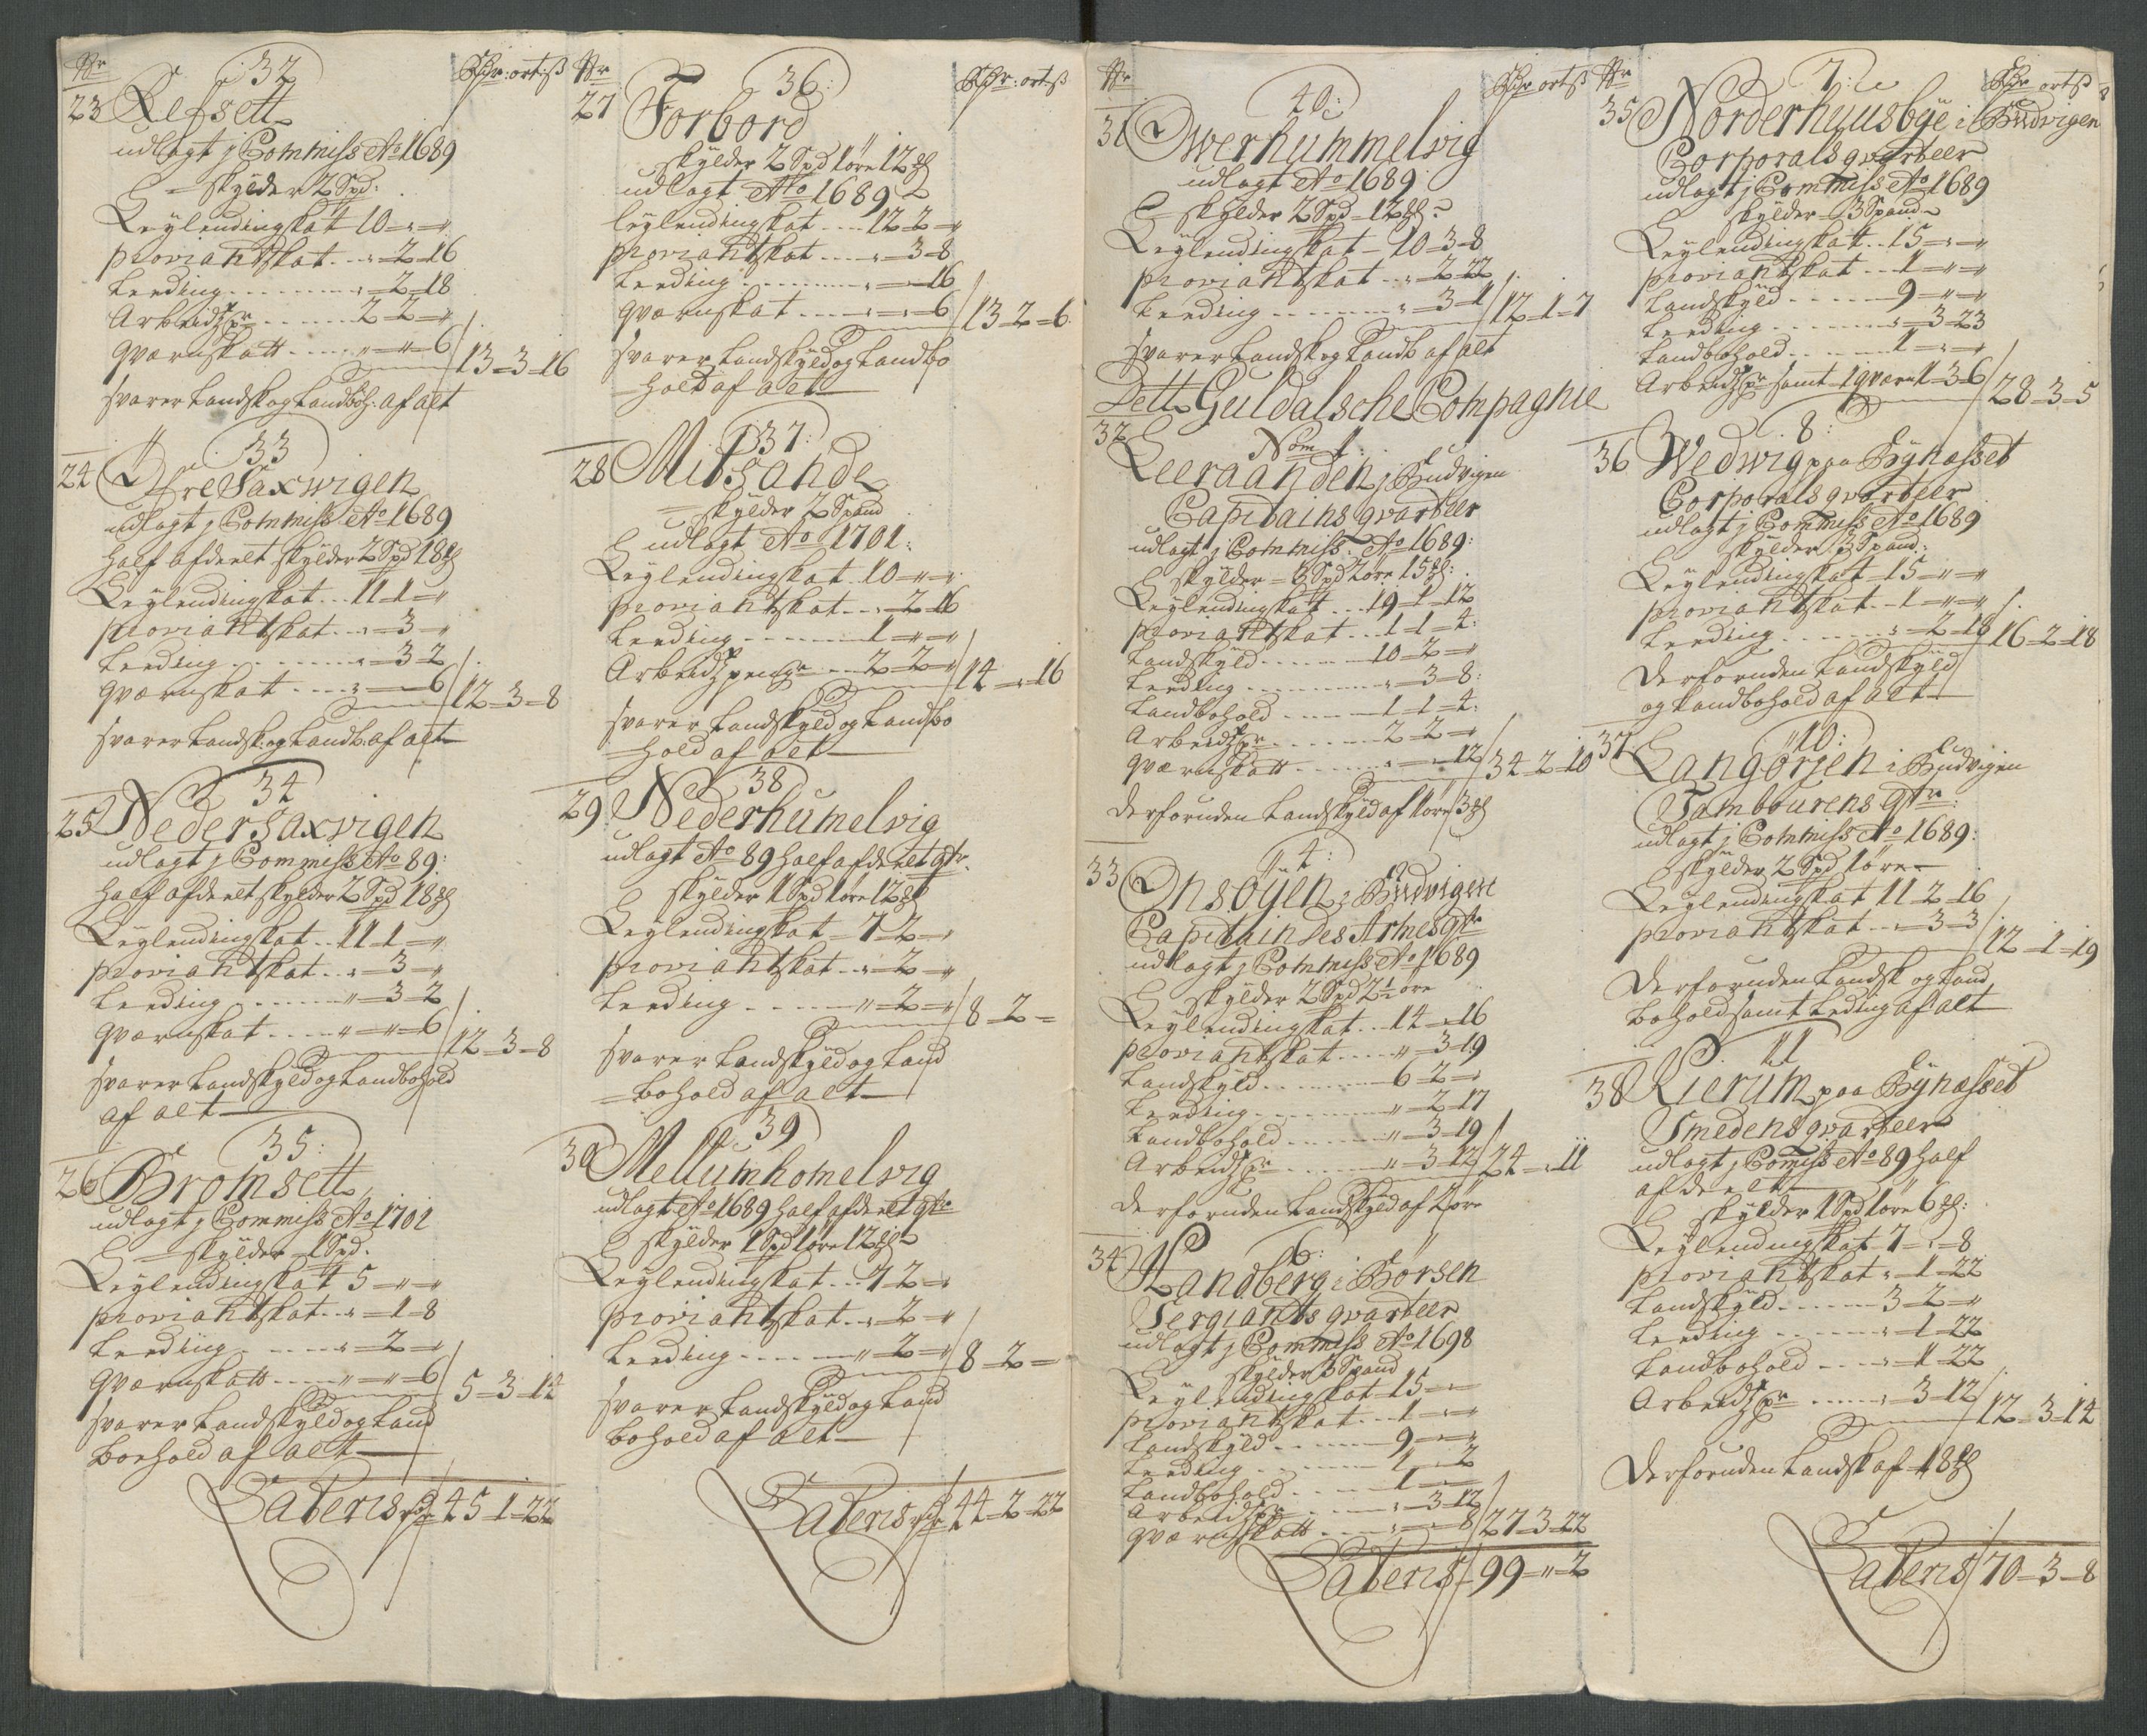 Nr
32
Rdr: ort: ß
23 Refsett
udlagt j Commiss Ao 1689
skÿlder 2 Spd:
Leÿlendingskat 10 = " = "
proviantskat . . . " = 2 = 16
Leeding . . . . . . . . " = 2 = 18
Arbeidzpr . . . . . . 2 = 2 = "
qværnskatt . . . . " = " = 6 / 13 = 3 = 16
svarer Landsk og Landboh: af alt
33
24 Øfre Saxwigen
udlagt j Commiss Ao 1689
half afdeelt skÿlder 2 Spd 18 ℔
Leÿlendingskat . . 11 = 1 = "
proviantskat . . . " = 3 = "
Leeding . . . . . . . . " = 3 = 2
qværnskat . . . . " = " = 6 / 12 = 3 = 8
svarer Landsk: og Landb: af alt
34
25 Neder Saxvigen
udlagt j Commiss Ao 89:
half afdeelt skÿlder 2 Spd 18 ℔
Leÿlendingskat . . 11 = 1 = "
proviantskat . . " = 3 = "
Leeding . . . . . . . " = 3 = 2
qværnskat . . . . " = " = 6 / 12 = 3 = 8
svarer Landskÿld og Landbohold
af alt
35:
26 Bromsett
udlagt j Commiss Ao 1701
skÿlder 1 Spd.
Leÿlendingskat 5 = " = "
proviantskat . . " = 1 = 8
Leeding . . . . . . " = 2 = "
qværnskatt . . . " = " = 6 / 5 = 3 = 14
svarer Landskÿld og Land
boehold af alt
Lateris rdr 45 = 1 = 22
Nr
36:
Rdr: ort: ß
27 Forbord
skÿlder 2 Spd 1 öre 12 ℔
udlagt Ao 1689
leÿlendingskat . . . . 12 = 2 = "
proviantskat . . . . . " = 3 = 8
Leeding . . . . . . . . . " = " = 16
qværnskat . . . . " = " = 6 / 13 = 2 = 6
svarer Landskÿld og Landbo
hold af alt
37:
28 Midsande
skÿlder 2 Spand
udlagt Ao 1701:
Leÿlendingskat . 10 = " = "
proviantskat . . . " = 2 = 16
Leeding . . . . . . . . 1 = " = "
Arbeidzpenge . . . 2 = 2 = " / 14 = " = 16
svarer Landskÿld og Landbo
hold af alt
38
29 Nederhumelvig
udlagt Ao 89 half afdeelt qtr.
skÿlder 1 Spd 1 öre 12 ℔
Leÿlendingskat 7 = 2 = "
proviantskat . . " = 2 = "
Leeding . . . . . . " = 2 = " / 8 = 2 =
svarer Landskÿld og Land
bohold af alt
39
30 Mellumhomelvig
udlagt Ao 1689 half afdeelt qtr
skÿlder 1 Spd 1 öre 12 ℔
Leÿlendingskat . . . 7 = 2 = "
proviantskat . . " = 2 = "
Leeding . . . . . " = 2 = " / 8 = 2 =
svarer Landskÿld og Land
bohold af alt
Lateris rdr 44 = 2 = 22
Nr
40:
Rdr ort ß
31 Øwerhummelvig
udlagt Ao 1689
skÿlder 2 Spd 12 ℔
Leÿlendingskat 10 = 3 = 8
proviantskat . . " = 2 = 22
Leeding . . . . . . . . " = 3 = 1 / 12 = 1 = 7
svarer Landsk og Landb af alt
Dett Guldalsche Compagnie
Nom 1:
32 Leeraanden j Budvigen
Capitains qvarteer
udlagt j Commiss: Ao 1689:
skÿlder 3 Spd 2 öre 15 ℔:
Leÿlendingskat . . . 19 = 1 = 12
proviantskat . . . 1 = 1 = 4:
Landskÿld . . . . . . 10 = 2 = "
Leeding . . . . . . . . . " = 3 = 8:
Landbohold . . . . . 1 = 1 = 4:
Arbeidzpr . . . . . . . 2 = 2 = "
qværnskatt . . . . . . " = " = 12 / 34 = 2 = 10
derforuden Landskÿld af 1 öre 3 ℔
4:
33 Onsöÿen j Büdvigen
Capitain des Armes qtr
udlagt j Commiss Ao 1689
skÿlder 2 Spd 2½ öre
Leÿlendingskat . . 14 = " = 16
proviantskat . . . . . " = 3 = 19
Landskÿld . . . . . . . . 6 = 2 = "
Leeding . . . . . . . . . " = 2 = 17
Landbohold . . . . . . " = 3 = 19
Arbeidzpr . . . . . . . " = 3 = 12 / 24 = " = 11
derforuden Landskÿld af 1 öre
6:
34 Randberg i Börsen
Sergiants qvarteer
udlagt j Commiss Ao 1698
skÿlder 3 Spand
Leÿlendingskat 15 = " =
proviantskat . . . 1 = " = "
Landskÿld . . . . . . 9 = " = "
Leeding . . . . . . . . " = " = 2
Landbohold . . . . . 1 = " =
Arbeidzpr . . . . . . " = 3 = 12
qværnskatt . . . . " = " = 8 / 27 = 3 = 22
Lateris / 99 = " = 2
Nr
7:
Rdr ort ß
35 Norderhuusbÿe i Büdvigen
Corporals qvarteer
udlagt j Commiss Ao 1689
skÿlder 3 Spand
Leÿlendingskatt . . 15 = " = "
proviantskat . . . 1 = " = "
Landskÿld . . . . . . 9 = " = "
Leeding . . . . . . . . " = 3 = 23
Landbohold . . . . . 1 = " = "
Arbeidzpr samt 1 qværn 1 = 3 = 6 / 28 = 3 = 5
8:
36 Wedwig paa Bÿnæsset
Corporals qvarteer
udlagt j Commiss Ao 1689
skÿlder 3 Spand:
Leÿlendingskat 15 = " = "
proviantskat . . 1 = " = "
Leeding . . . . . . . . " = 2 = 18 / 16 = 2 = 18
derforuden Landskÿld
og Landbohold af alt
10:
37 Langörjen i Büdvigen
Tambourens qtr:
udlagt j Commiss Ao 1689:
skÿlder 2 Spd 1 öre
Leÿlendingskat 11 = 2 = 16
proviantskat . . " = 3 = 3 / 12 = 1 = 19
derforuden Landsk og Land
bohold samt Leding af alt
11
38 Rierum paa Bÿnæsset
Smedens qvarteer
udlagt j Comiss Ao 89 half
afdeelt
skÿlder 1 Spd 1 öre 6 ℔:
Leÿlendingskat 7 = " = 8
proviantskat " = 1 = 22
Landskÿld . . . . . . 3 = 2 = "
Leeding . . . . . . " = 1 = 22
Landbohold . . . . " = 1 = 22
Arbeidzpr . . . . . . " = 3 = 12 / 12 = 3 = 14
derforuden Landsk af 18 ℔
Lateris / 70 = 3 = 8